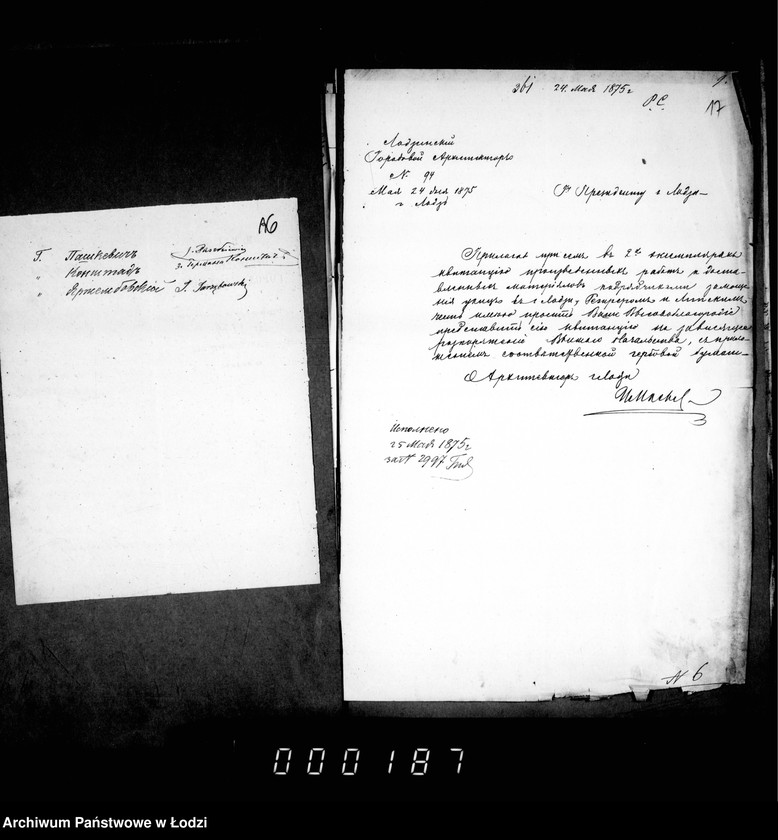 16
Г. Пашкевичъ
" Конштадъ
" Яржембовскій
17
361 24 Мая 1875 г
Р. С.
Лодзинскій
Городовой Архитекторъ
N. 94
Мая 24 дня 1875
г. Лодзь
Гу Президенту г. Лодзи
Прилагая при семъ въ 2хъ экземплярахъ
квитанцію произведенныхъ работъ и доста-
вленныхъ матеріаловъ подрядчиками замоще-
нія улицъ въ г. Лодзи,
честь имѣю просить Ваше Высокоблагородіе
представить сію квитанцію на зависящее
распоряженіе Высшаго Начальства, съ прило-
женіемъ соотвѣтственной гербовой бумаги.
Архитекторъ г. Лодзи
Исполнено
25 Мая 1875 г
за N 2997
N 6
000187
Archiwum Państwowe w Łodzi